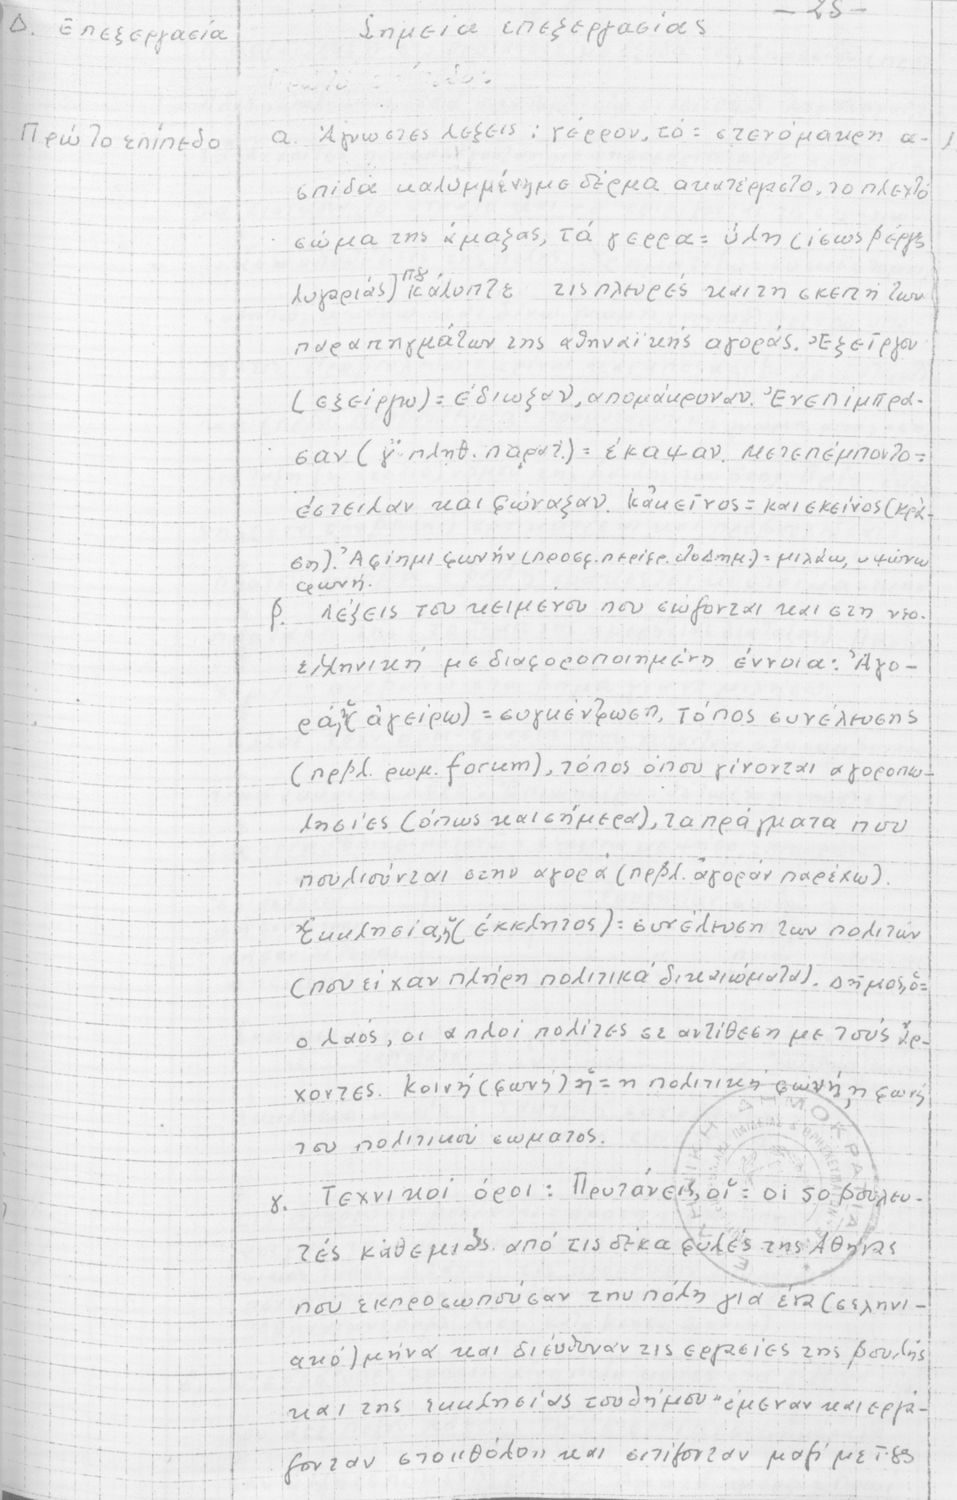 - 25 -
Δ. Επεξεργασία Σημεία επεξεργασίας
Πρώτο επίπεδο α. Ἄγνωστες λέξεις: γέρρον, τό = στενόμακρη α-
σπίδα καλυμμένη με δέρμα ακατέργαστο, το πλεχτό
σώμα της άμαξας, τά γερρα = ὕλη (ίσως βέργες
λυγαριάς) που κάλυπτε τις πλευρές και τη σκεπή των
παραπηγμάτων της αθηναϊκής αγοράς. Ἐξεῖργον
(εξείργω) = έδιωξαν, απομάκρυναν. Ἐνεπίμπρα-
σαν (γ΄ πληθ. παρατ.) = έκαψαν. Μετεπέμποντο =
έστειλαν και φώναξαν. κἀκεῖνος = και εκείνος (κρά-
ση). Ἀφίημι φωνήν (προσφ. περίφρ. στο Δημ.) = μιλάω, υψώνω
φωνή.
β. Λέξεις του κειμένου που σώζονται και στη νεο-
ελληνική με διαφοροποιημένη έννοια: Ἀγο-
ρά, ἡ (ἀγείρω) = συγκέντρωση, τόπος συνέλευσης
(πρβλ. ρωμ. forum), τόπος όπου γίνονται αγοραπω-
λησίες (όπως και σήμερα), τα πράγματα που
πουλιούνται στην αγορά (πρβλ. ἀγοράν παρέχω).
Ἐκκλησία, ἡ (έκκλητος) = συνέλευση των πολιτών
(που είχαν πλήρη πολιτικά δικαιώματα). Δῆμος, ὁ =
ο λαός, οι απλοί πολίτες σε αντίθεση με τούς ἄρ-
χοντες. Κοινή (φωνή) ἡ = η πολιτική φωνή, η φωνή
του πολιτικού σώματος.
γ. Τεχνικοί όροι: Πρυτάνεις, οἱ = οι 50 βουλευ-
τές κάθε μιάς από τις δέκα φυλές της Αθήνας
που εκπροσωπούσαν την πόλη για ένα (σεληνι-
ακό) μήνα και διεύθυναν τις εργασίες της βουλής
και της εκκλησίας του δήμου· έμεναν και εργά-
ζονταν στο "θόλο" και σιτίζονταν μαζί με τους
ΕΛΛΗΝΙΚΗ ΔΗΜΟΚΡΑΤΙΑ